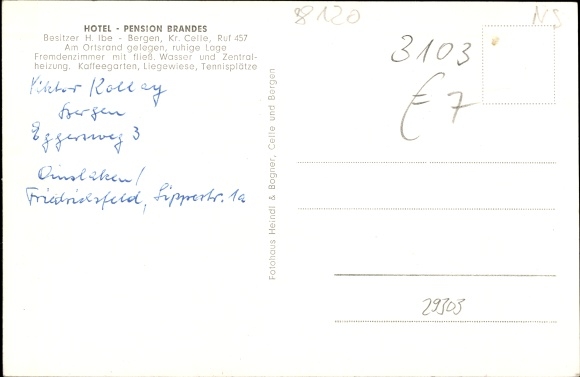 HOTEL - PENSION BRANDES
Besitzer H. Ibe - Bergen, Kr. Celle, Ruf 457
Am Ortsrand gelegen, ruhige Lage
Fremdenzimmer mit fließ. Wasser und Zentral-
heizung. Kaffeegarten, Liegewiese, Tennisplätze
Viktor Kollay
Bergen
Eggersweg 3
Dinslaken/
Friedrichsfeld, Lipperstr. 1a
Fotohaus Heindl & Bogner, Celle und Bergen
8120
NS
3103
€ 7
29303